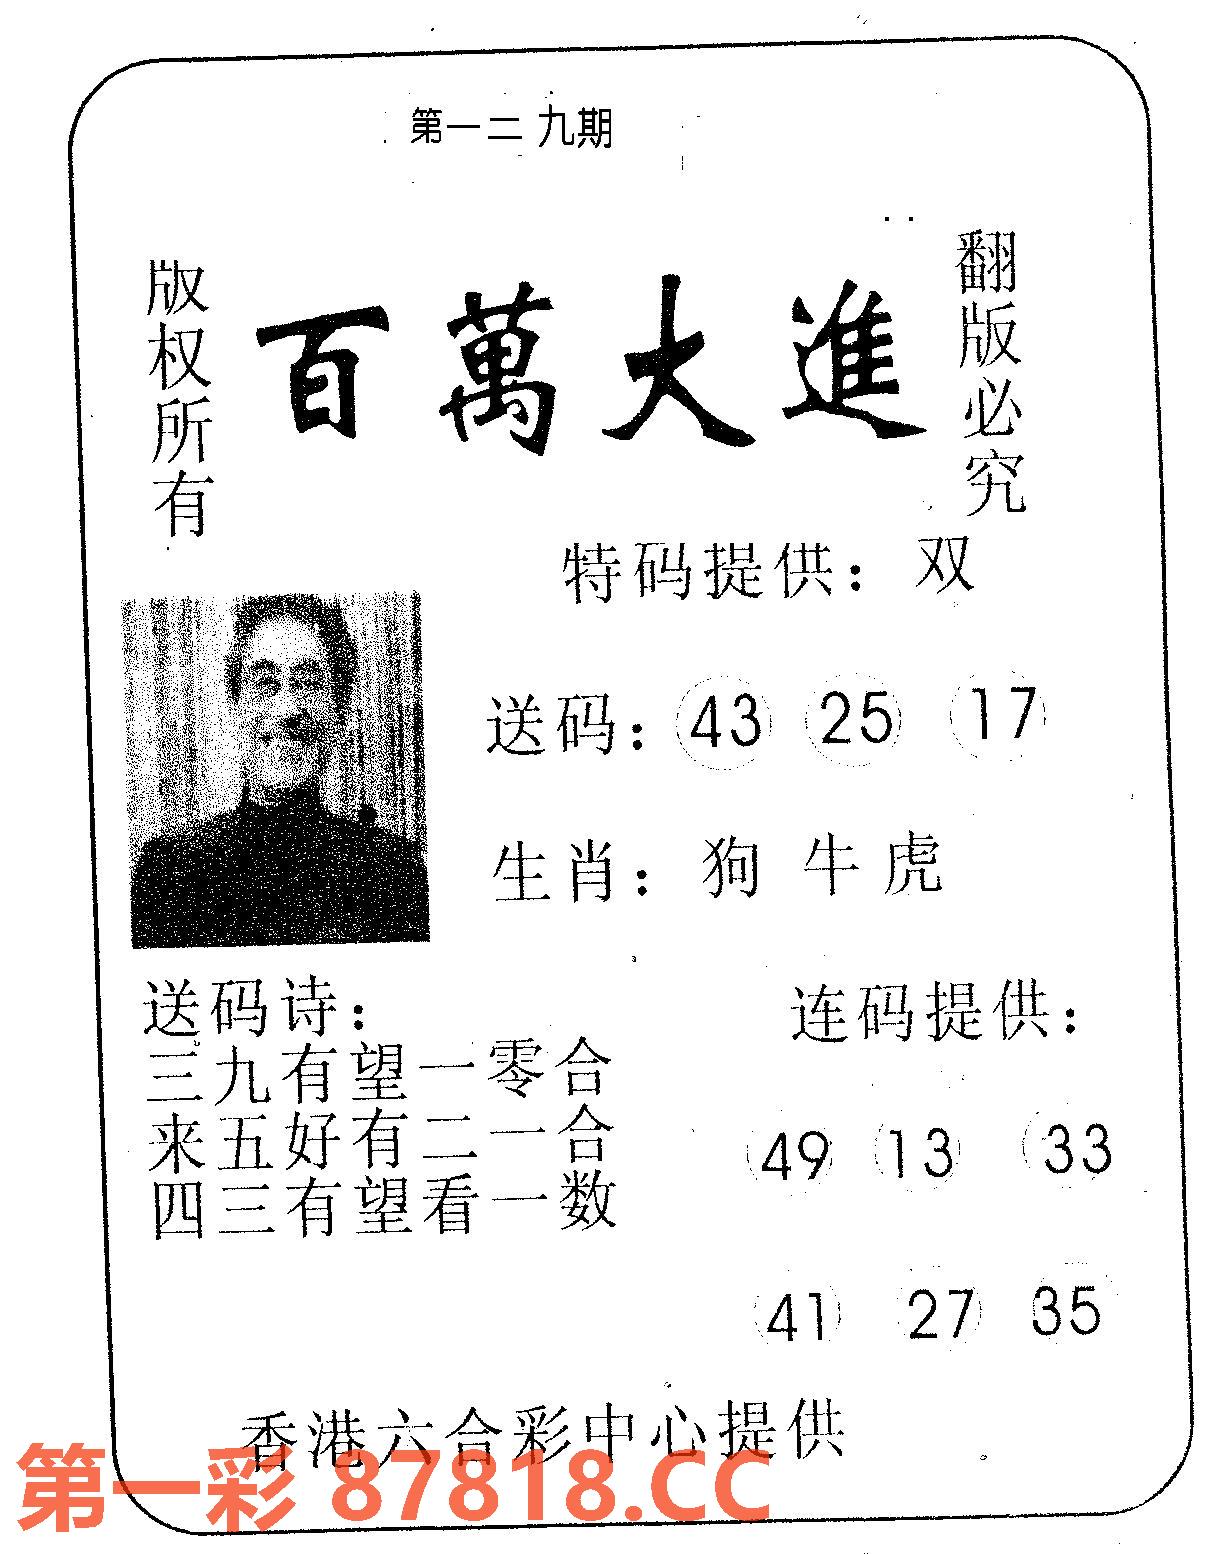 第一二九期
版权所有
百萬大進
翻版必究
特码提供：双
送码：43 25 17
生肖：狗 牛 虎
送码诗：
三九有望一零合
来五好有二一合
四三有望看一数
连码提供：
49 13 33
41 27 35
香港六合彩中心提供
第一彩 87818.CC